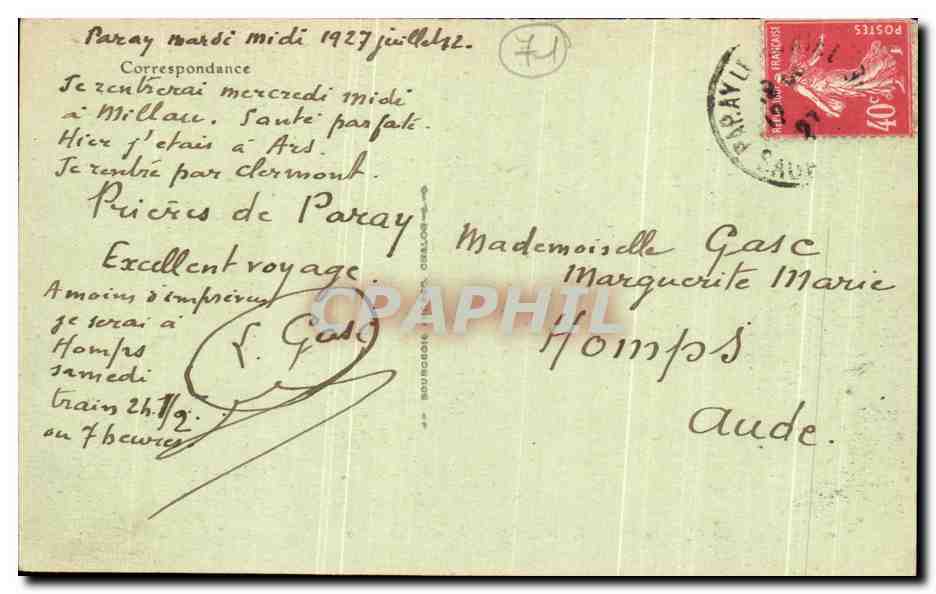 Paray mardi midi 1927 juillet 12.
71
Correspondance
Je rentrerai mercredi midi
à Millau. Santé parfate.
Hier j'etais à Ars.
Je rentre par clermont.
Prières de Paray
Excellent voyage.
A moins d'imprévu
je serai à
Homps
samedi
train 2h.1/2.
ou 7 heures
L. Gasc
Mademoiselle Gasc
Marguerite Marie
Homps
Aude.
BOURGEOIS CHALON
PARAY LE
REPUBLIQUE FRANÇAISE
POSTES
40c
CPAPHIL